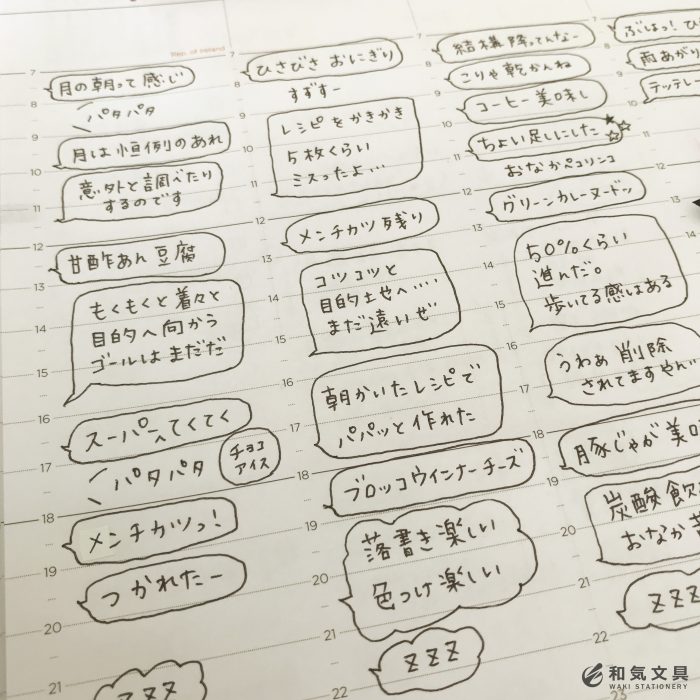 Rep. of Ireland
7
月の朝って感じ
8
パタパタ
9
月は恒例のあれ
10
意外と調べたり
するのです
11
12
甘酢あん豆腐
13
もくもくと着々と
14
目的へ向から
15
ゴールはまだだ
16
スーパーへてくてく
17
パタパタ
チョコ
アイス
18
メンチカツっ!
19
つかれたー
20
21
ZZZ
7
ひさびさ おにぎり
8
すずすー
9
レシピをかきかき
10
5枚くらい
ミスったよ…
11
12
メンチカツ残り
13
コツコツと
14
目的土せへ‥‥
まだ遠いぜ
15
16
朝かいたレシピで
17
パパッと作れた
18
ブロッコウインナーチーズ
19
落書き楽しい
20
色つけ楽しい
21
22
ZZZ
7
結構降ってんなー
8
こりゃ乾かんね
9
コーヒー美味し
10
ちょい足しにした
11
おなかペコリンコ
12
グリーンカレーヌードッ
13
50%くらい
14
進んだ。
歩いてる感はある
15
16
うわぁ削除
されてますやん…
17
18
豚じゃが美味
19
炭酸飲
20
おなか苦
21
ZZZ
22
7
ぶはっ!ひ
8
雨あがり
9
テッテレ
10
11
12
13
14
和気文具
WAKI STATIONERY